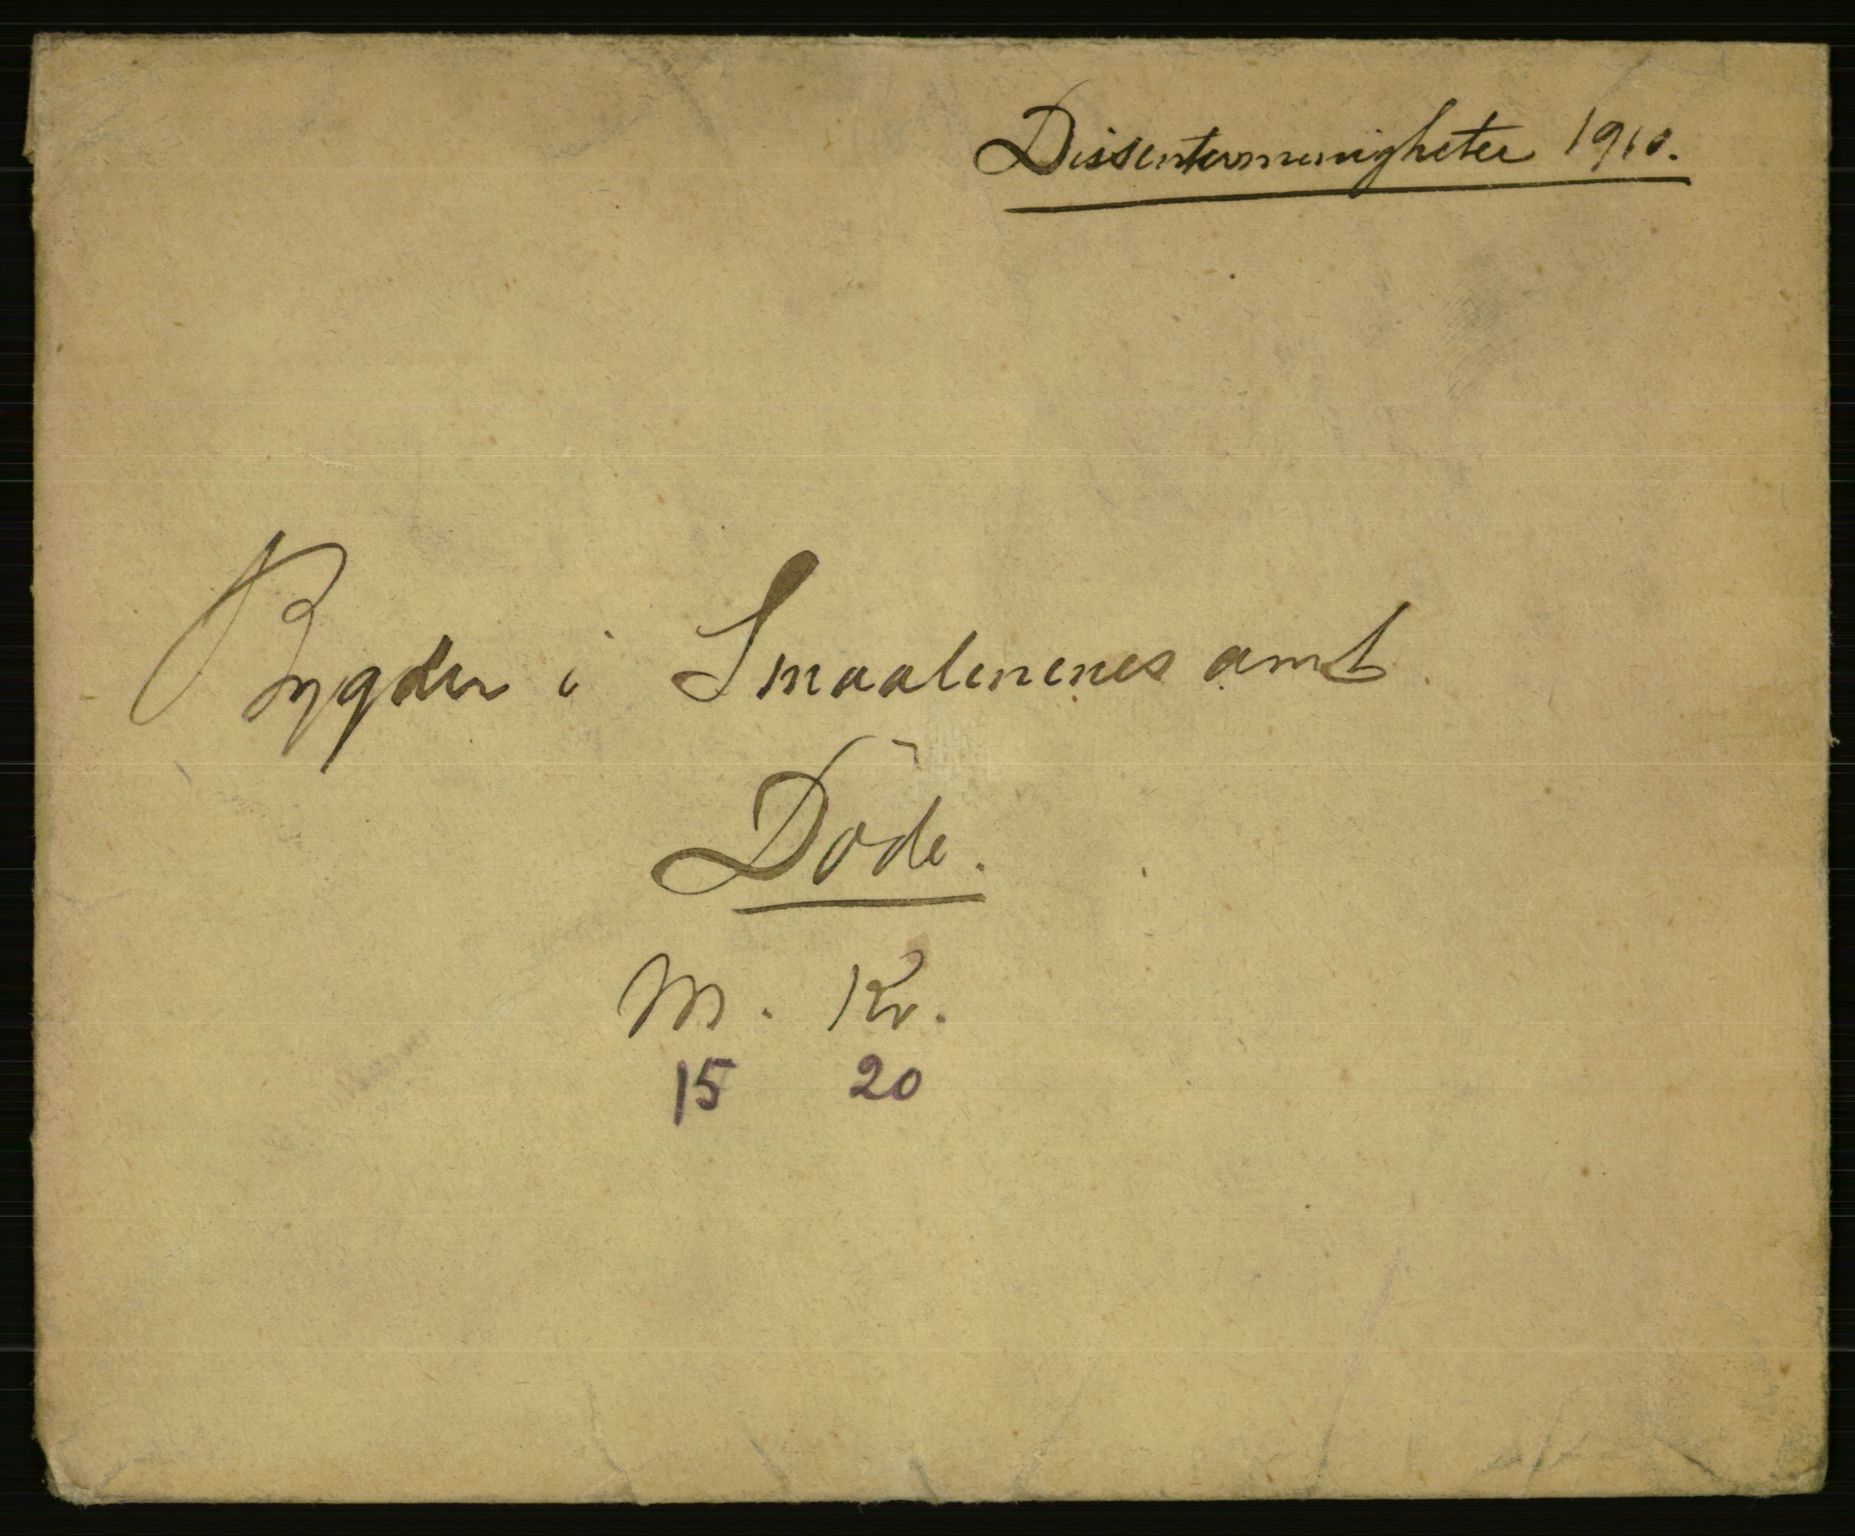 Dissentermenigheter 1910.
Bygder i Smaalenenes amt.
Döde.
M. Kv.
15 20